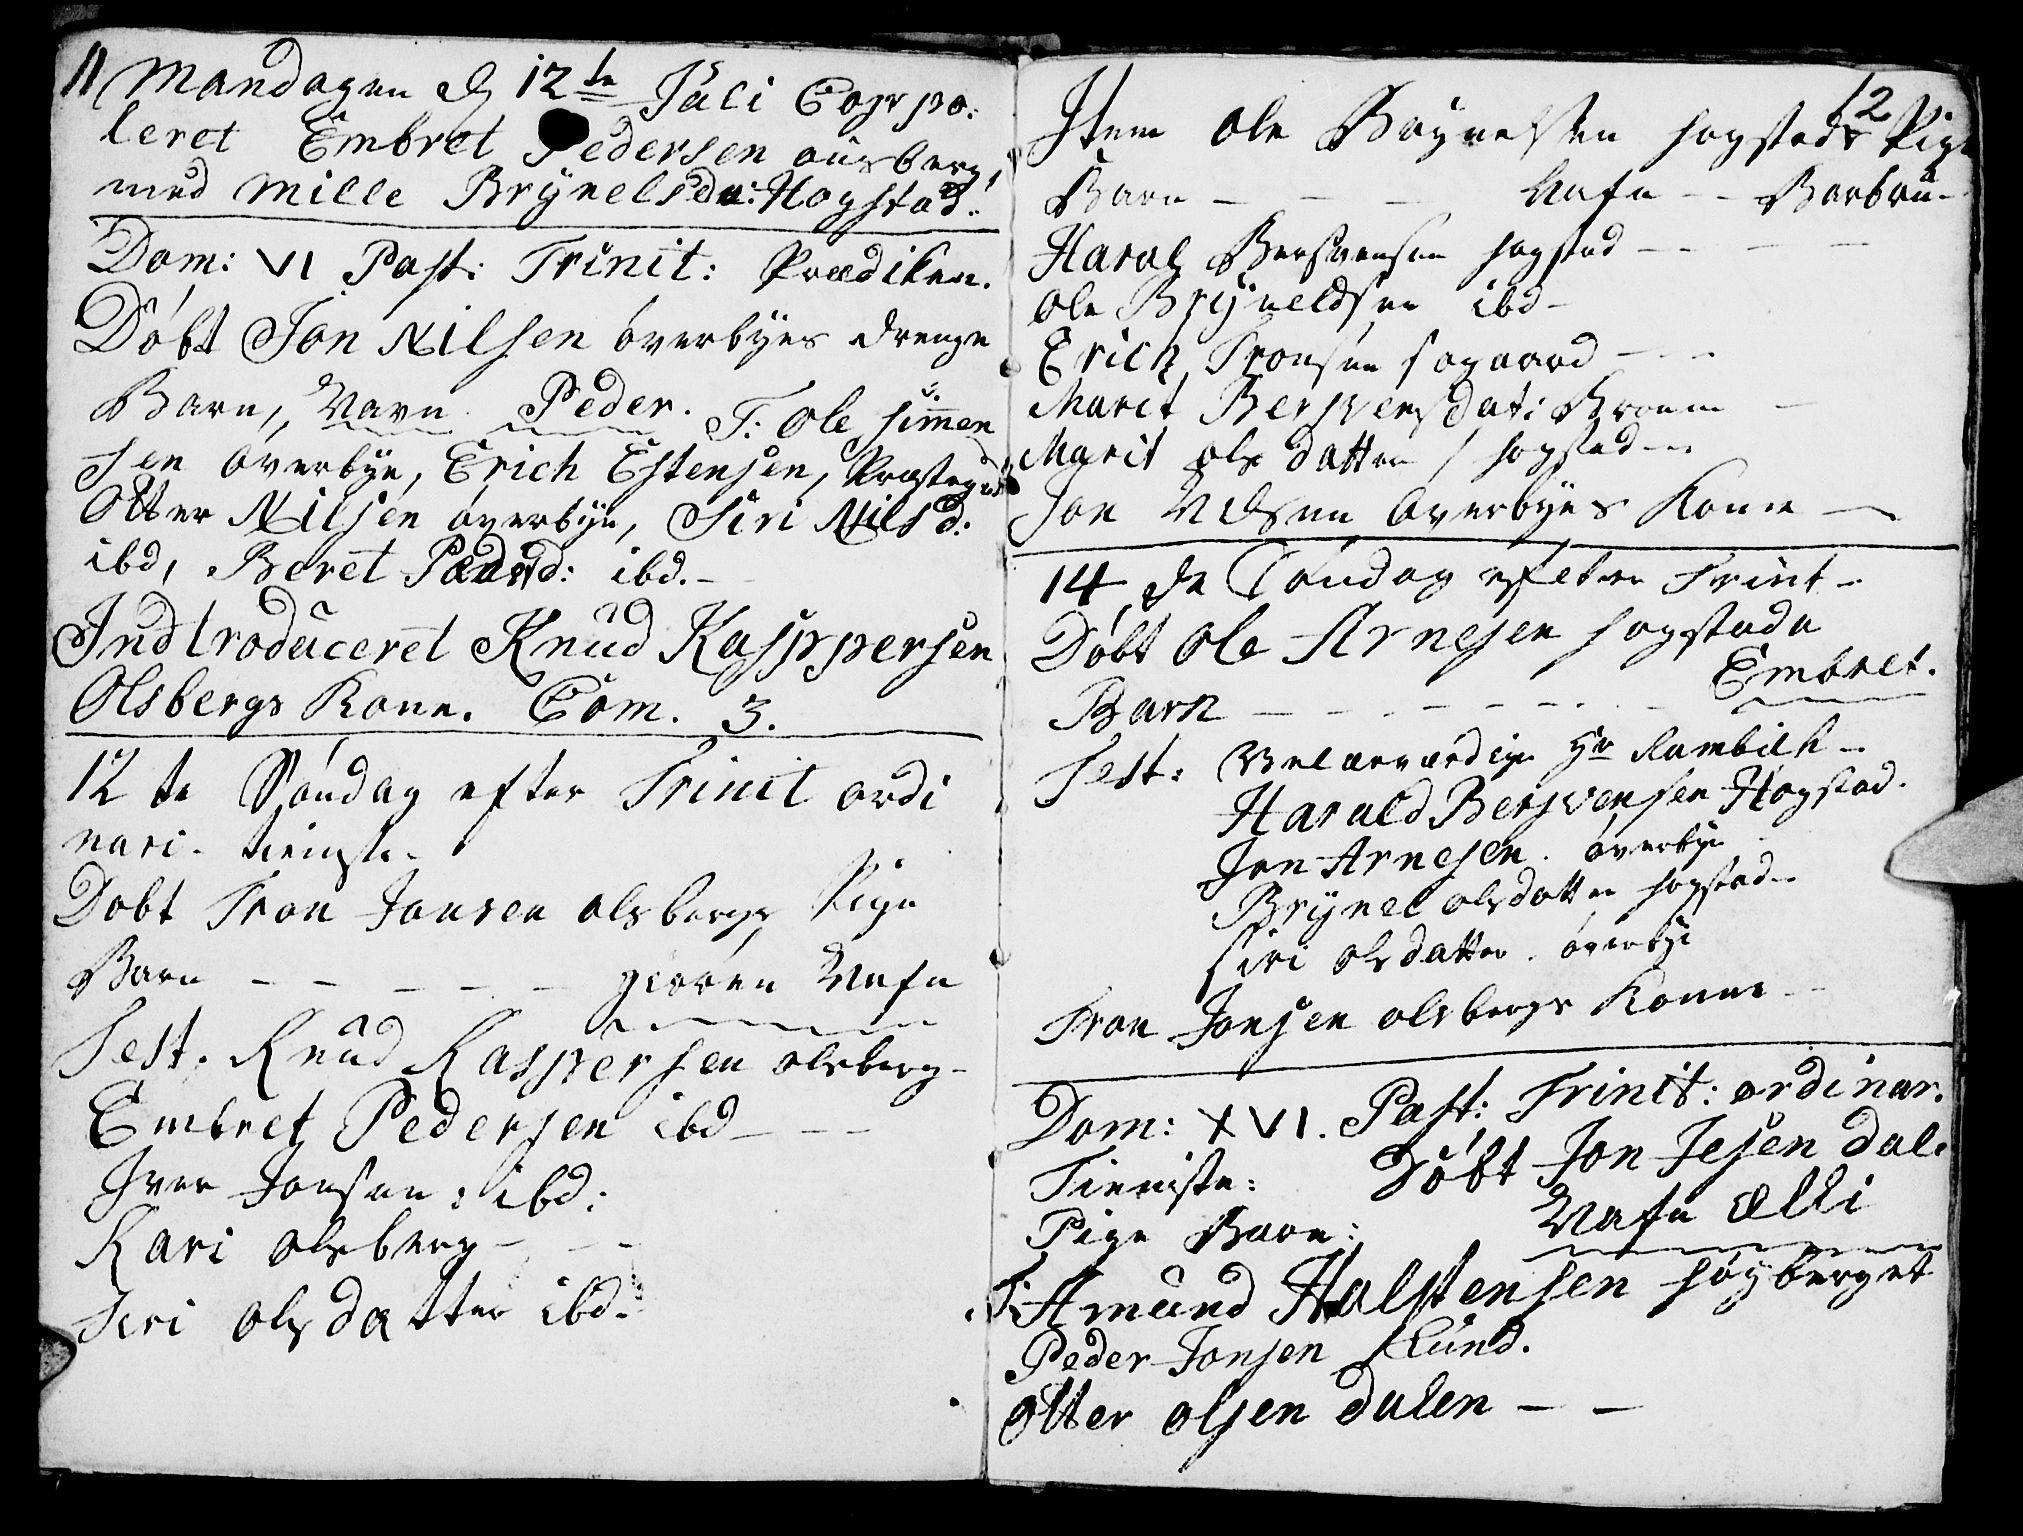 11 Mandagen d 12te Juli Copspo:
leret Embret Pedersen ousberg,
med Mille Brynelsdr: Hogstad.
Dom: VI Post: Trinit: Prædiken.
Döbt Jon Nilsen överbyes drenge
Barn, Navn Peder. T: Ole Simmen
sen överbye, Erich Estensen, Præstegrd
Otter Nilsen överbye, Siri Nilsd:
ibd, Beret Pedersd: ibd.-
Indtroduceret Knud Kasppersen
Olsbergs Kone. Com. 3.
12te Söndag efter Trinit ordi
nari. tienste.
Dobt Tron Jonsen olsbergs Pige
Barn - - - - - giören Nafn
Test. Knud Kaspersen olsberg-
Embret Pedersen ibd - - -
Iver Jonsen: ibd:
Kari olsberg - - -
Siri olsdatter ibd.
12
Item ole Brynelsen hogstads Pige
Barn - - - Nafn - - Barbru-
Haral Bersvensen hogstad - - - -
Ole Bryneldsen ibd-
Erich Tronsen sogaard - - -
Marit Bersvensdat: Broen -
Marit ols datter / hogstad - -
Jon Nilsen överbyes Kone -
14 de Söndag efter Trinit -
Döbt Ole Arnesen hogstads
Barn - - - - - - - - Embret.
Test: Velærværdige Hr Rambech -
Harald Bersvensen Hogstad.
Jon Arnesen. överbye
Brynel olsdatter hogstad -
Siri olsdatter. överbye
Tron Jonsen olsbergs Konne -
Dom: XVI. Post: Trinit: ordinar.
Tieniste: Döbt Jon Jesen Dale
Pige Barn: Nafn Elli
T: Amund Halstensen Høyberget
Peder Jonsen Lund.
Otter olsen dalen - -